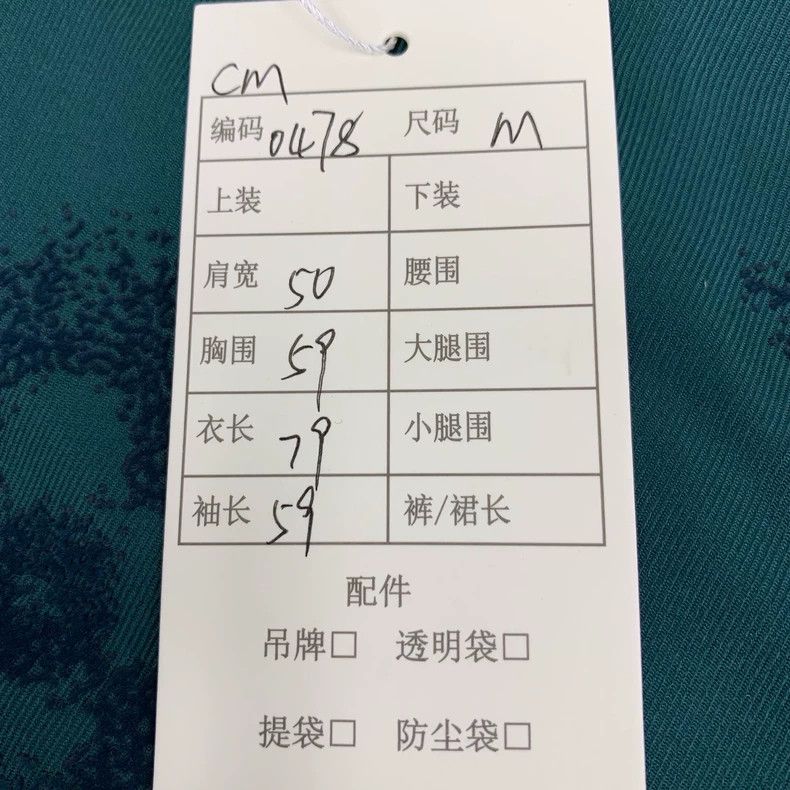 CM
编码 0478 尺码 M
上装 下装
肩宽 50 腰围
胸围 59 大腿围
衣长 79 小腿围
袖长 59 裤/裙长
配件
吊牌□ 透明袋□
提袋□ 防尘袋□